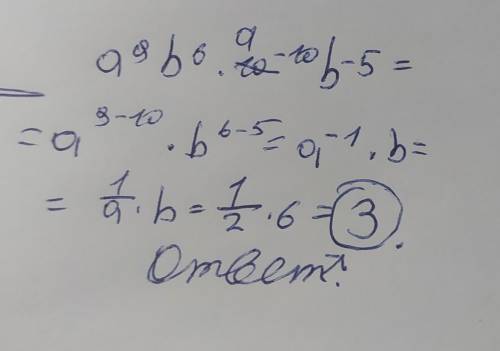 a⁹b⁶ · a⁻¹⁰b-5 =
= a⁹⁻¹⁰ · b⁶⁻⁵ = a⁻¹ · b =
= 1/a · b = 1/2 · 6 = 3.
Ответ↑.